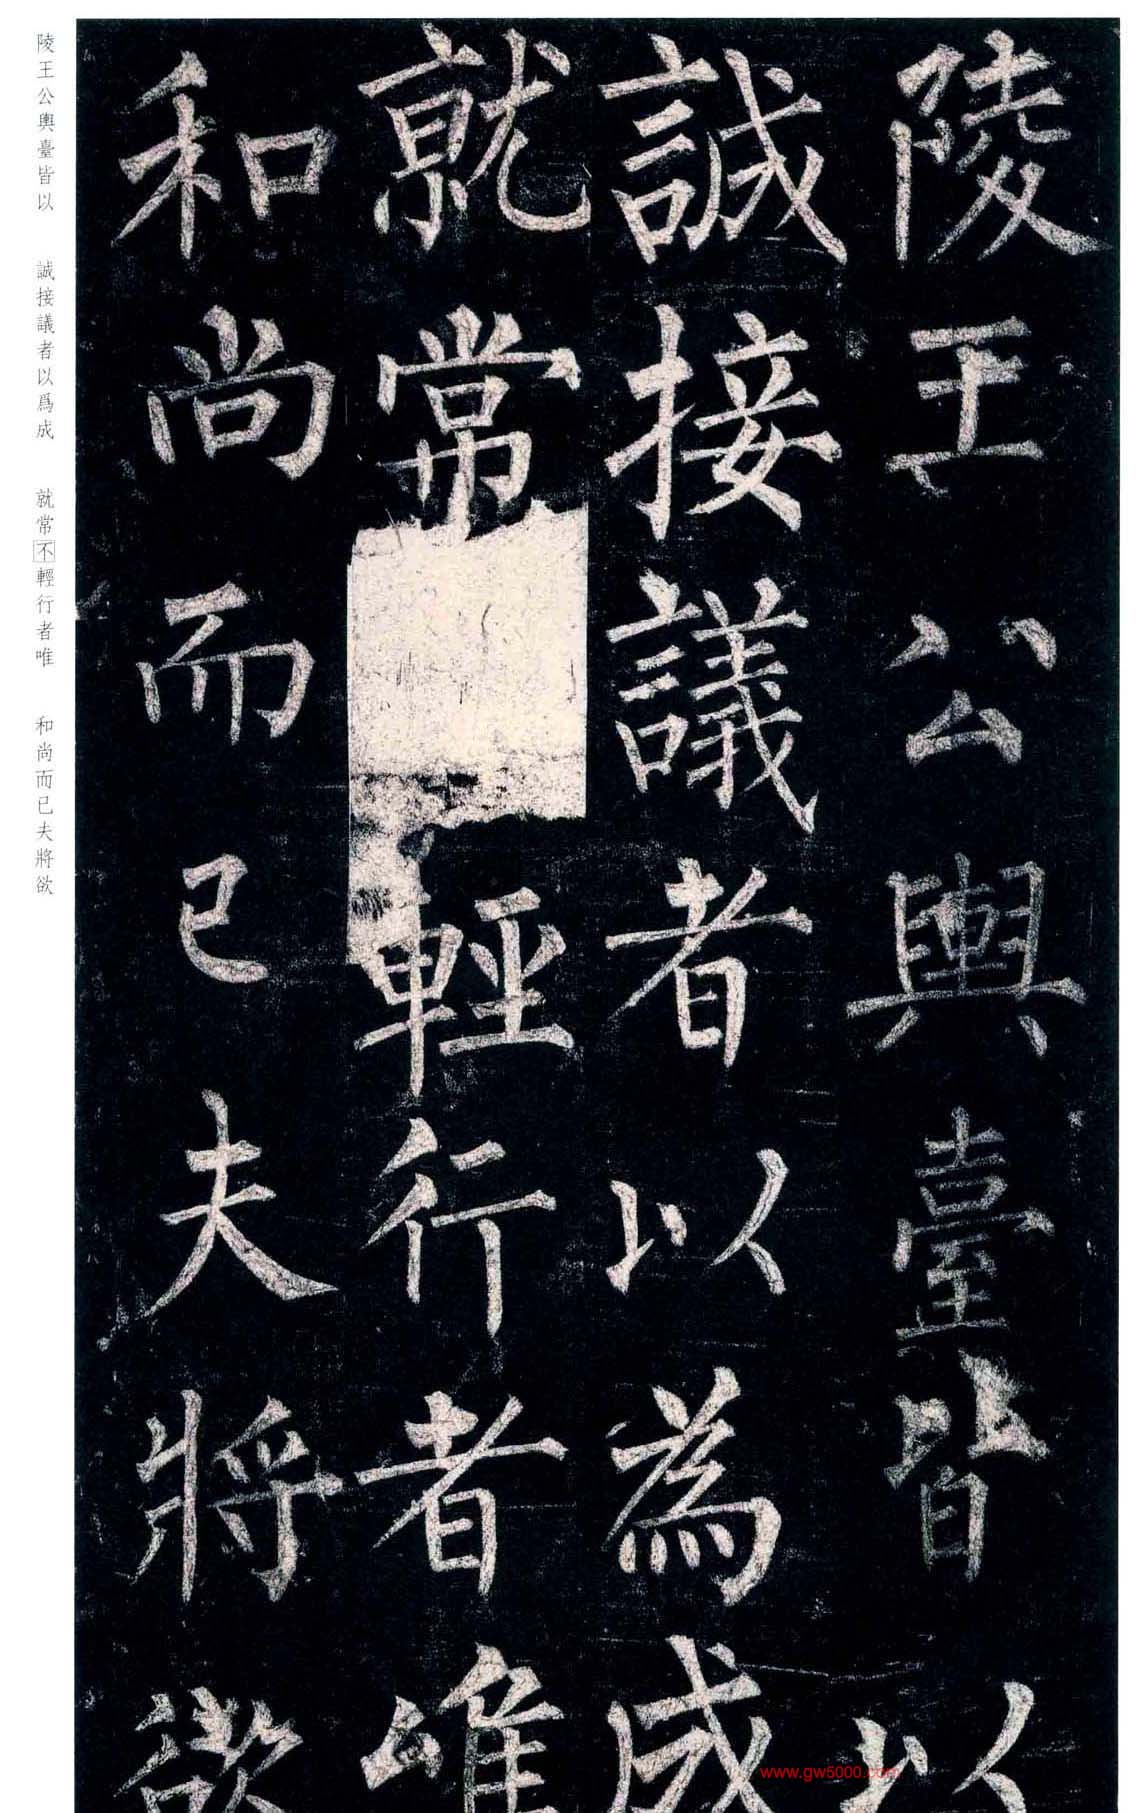 陵王公輿臺皆以
誠接議者以為成
就常輕行者唯
和尚而已夫將欲
陵王公輿臺皆以 誠接議者以爲成 就常不輕行者唯 和尚而已夫將欲
www.gw5000.com